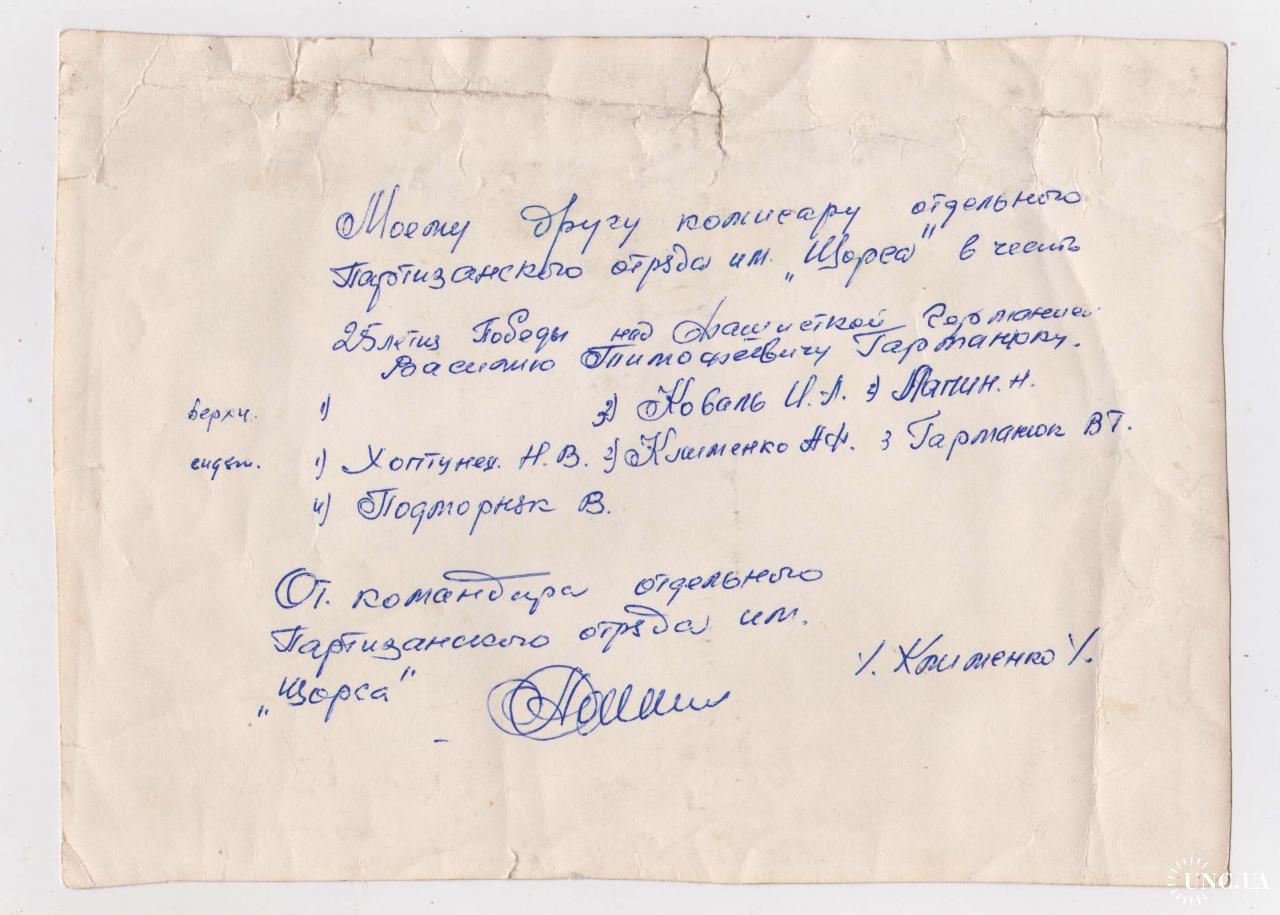 Моему другу комисару отдельного
Партизанского отряда им. „Щорса" в честь
25 летия Победы над Фашисткой Германией
Василию Тимофеевичу Гарманюку.
верхн. 1) 2) Коваль И.Л. 3) Лапин. Н.
сидят. 1) Хоптунец. Н.В. 2) Клименко А.Ф. 3 Гарманюк В Т.
4) Подморняк В.
От. командира отдельного
Партизанского отряда им.
„Щорса" /. Клименко /.
UNC.UA